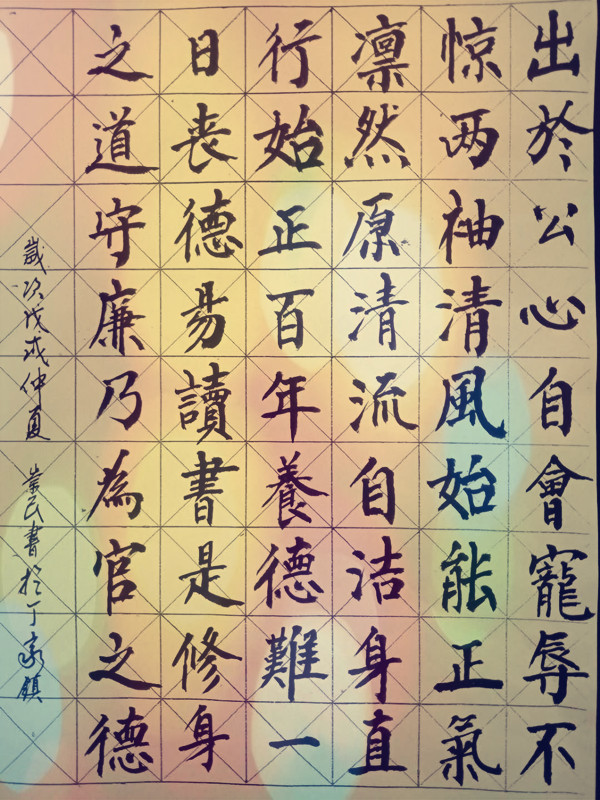 出於公心自會寵辱不
惊两袖清風始能正氣
凛然原清流自洁身直
行始正百年養德難一
日丧德易讀書是修身
之道守廉乃為官之德
歲次戊戌仲夏 民書於丁家鎮